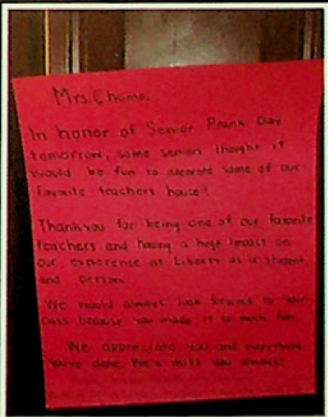 Mrs. Chomo,
In honor of Senior Prank Day
tomorrow, some seniors thought it
would be fun to decorate some of our
favorite teachers house!
Thank you for being one of our favorite
teachers and having a huge impact on
our experience at Liberty as a student
and person.
We would always look forward to your
class because you made it so much fun.
We appreciate you and everything
you've done. We'll miss you always!